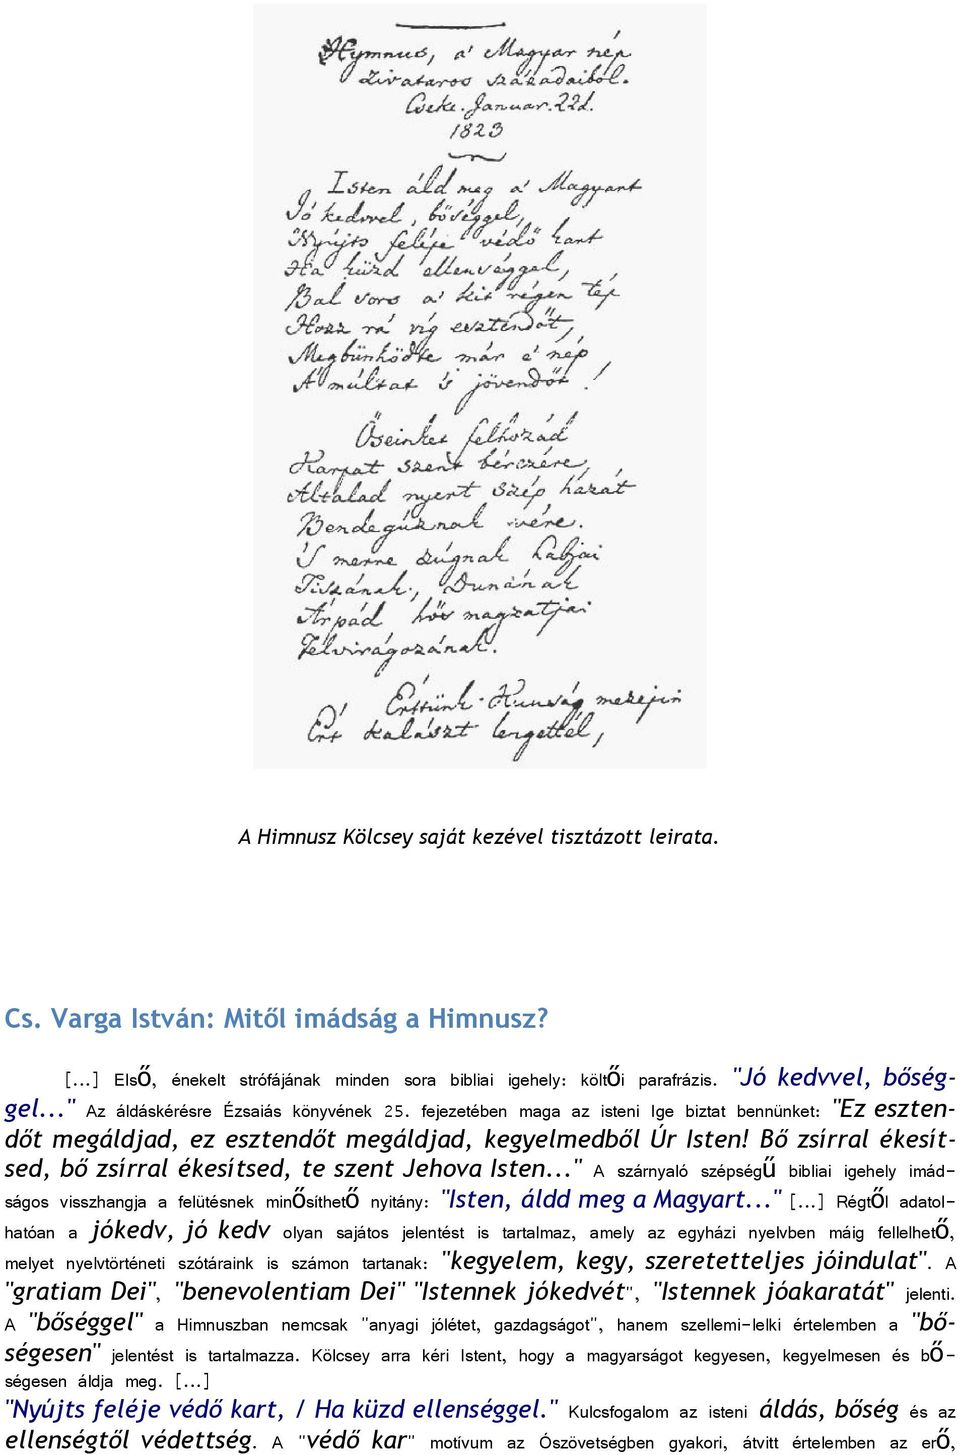 Hymnus, a' Magyar nép
zivataros századaiból.
Cseke. Januar. 22d.
1823
Isten áld meg a' Magyart
Jó kedvvel, bőséggel,
Nyújts feléje védő kart
Ha küzd ellenséggel,
Bal sors a' kit régen tép
Hozz rá víg esztendőt,
Megbünhödte már e' nép
A' múltat 's jövendőt!
Őseinket felhozád
Kárpát szent bérczére,
Általad nyert szép hazát
Bendegúznak vére.
'S merre zúgnak habjai
Tiszának, Dunának
Árpád hős magzatjai
Felvirágozának.
Értünk Kunság mezejin
Ért kalászt lengettél,
A Himnusz Kölcsey saját kezével tisztázott leirata.
Cs. Varga István: Mitől imádság a Himnusz?
[...] Első, énekelt strófájának minden sora bibliai igehely: költői parafrázis. "Jó kedvvel, bőség-
gel..." Az áldáskérésre Ézsaiás könyvének 25. fejezetében maga az isteni Ige biztat bennünket: "Ez eszten-
dőt megáldjad, ez esztendőt megáldjad, kegyelmedből Úr Isten! Bő zsírral ékesít-
sed, bő zsírral ékesítsed, te szent Jehova Isten..." A szárnyaló szépségű bibliai igehely imád-
ságos visszhangja a felütésnek minősíthető nyitány: "Isten, áldd meg a Magyart..." [...] Régtől adatol-
hatóan a jókedv, jó kedv olyan sajátos jelentést is tartalmaz, amely az egyházi nyelvben máig fellelhető,
melyet nyelvtörténeti szótáraink is számon tartanak: "kegyelem, kegy, szeretetteljes jóindulat". A
"gratiam Dei", "benevolentiam Dei" "Istennek jókedvét", "Istennek jóakaratát" jelenti.
A "bőséggel" a Himnuszban nemcsak "anyagi jólétet, gazdagságot", hanem szellemi-lelki értelemben a "bő-
ségesen" jelentést is tartalmazza. Kölcsey arra kéri Istent, hogy a magyarságot kegyesen, kegyelmesen és bő-
ségesen áldja meg. [...]
"Nyújts feléje védő kart, / Ha küzd ellenséggel." Kulcsfogalom az isteni áldás, bőség és az
ellenségtől védettség. A "védő kar" motívum az Ószövetségben gyakori, átvitt értelemben az erő,